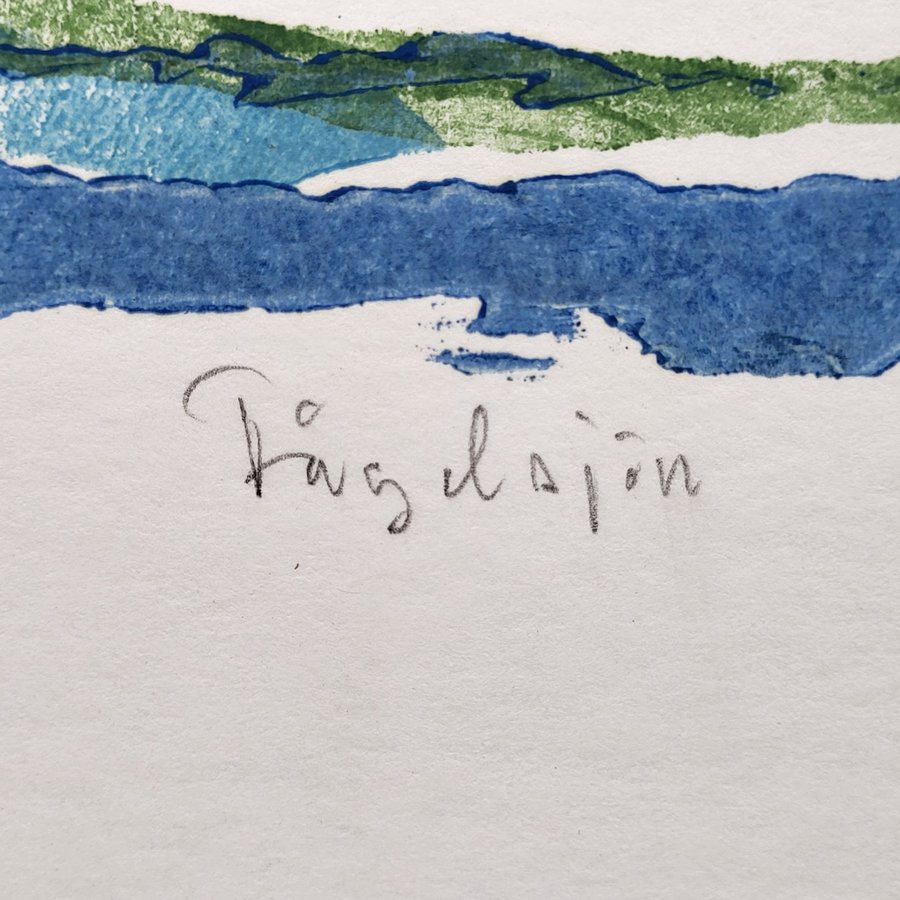 Fågelsjön